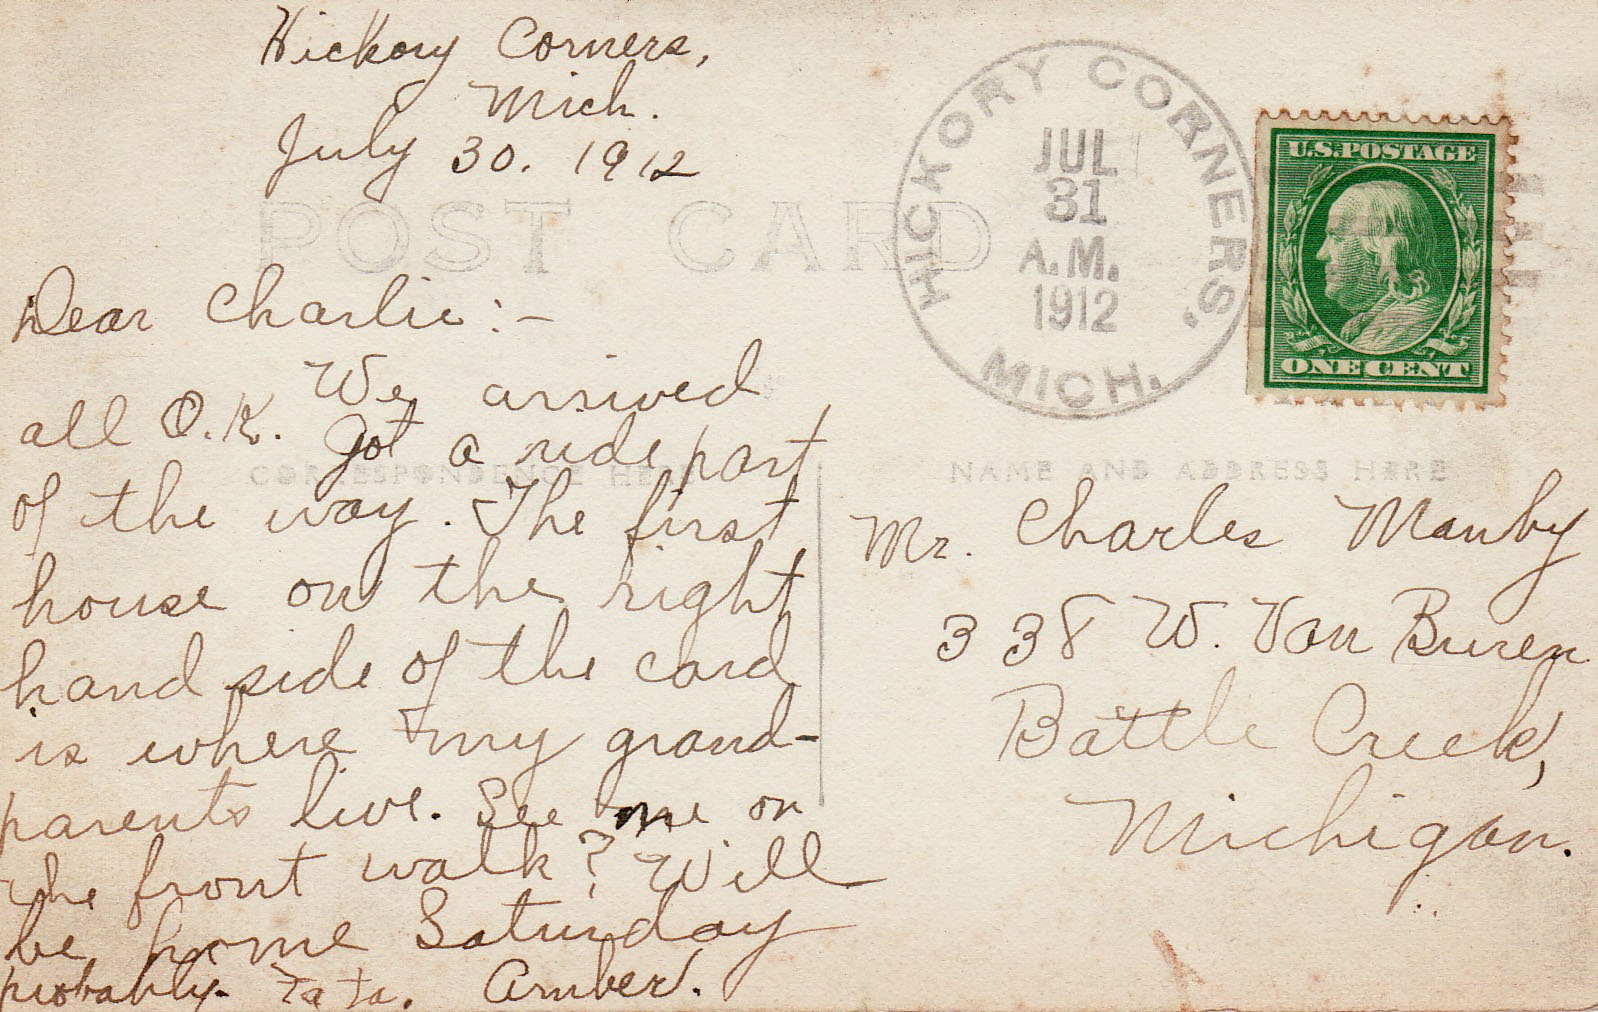 Hickory Corners,
Mich.
July 30. 1912
POST CARD
HICKORY CORNERS,
JUL
31
A.M.
1912
MICH.
U.S. POSTAGE
ONE CENT
Dear Charlie :-
We arrived
all O.K. Got a ride part
of the way. The first
house on the right
hand side of the card
is where my grand-
parents live. See me on
the front walk? Will
be home Saturday
probably. Ta ta. Amber.
CORRESPONDENCE HERE
NAME AND ADDRESS HERE
Mr. Charles Manby
338 W. Van Buren
Battle Creek,
Michigan.